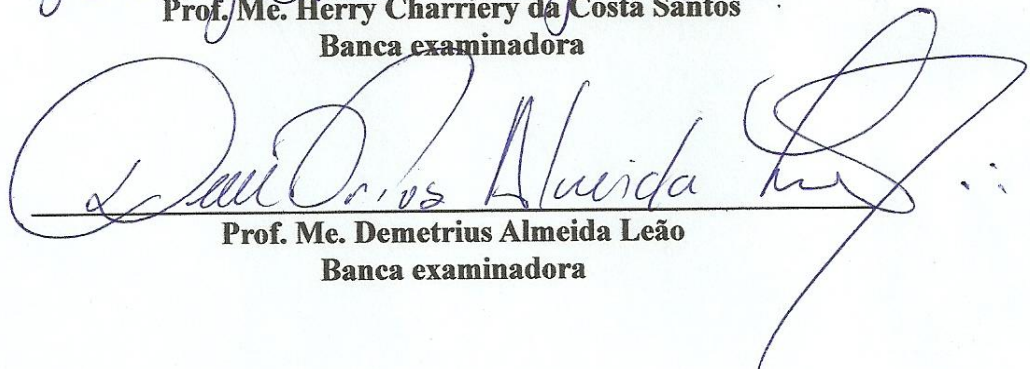 Prof. Me. Herry Charriery da Costa Santos
Banca examinadora
Demetrius Almeida
Prof. Me. Demetrius Almeida Leão
Banca examinadora